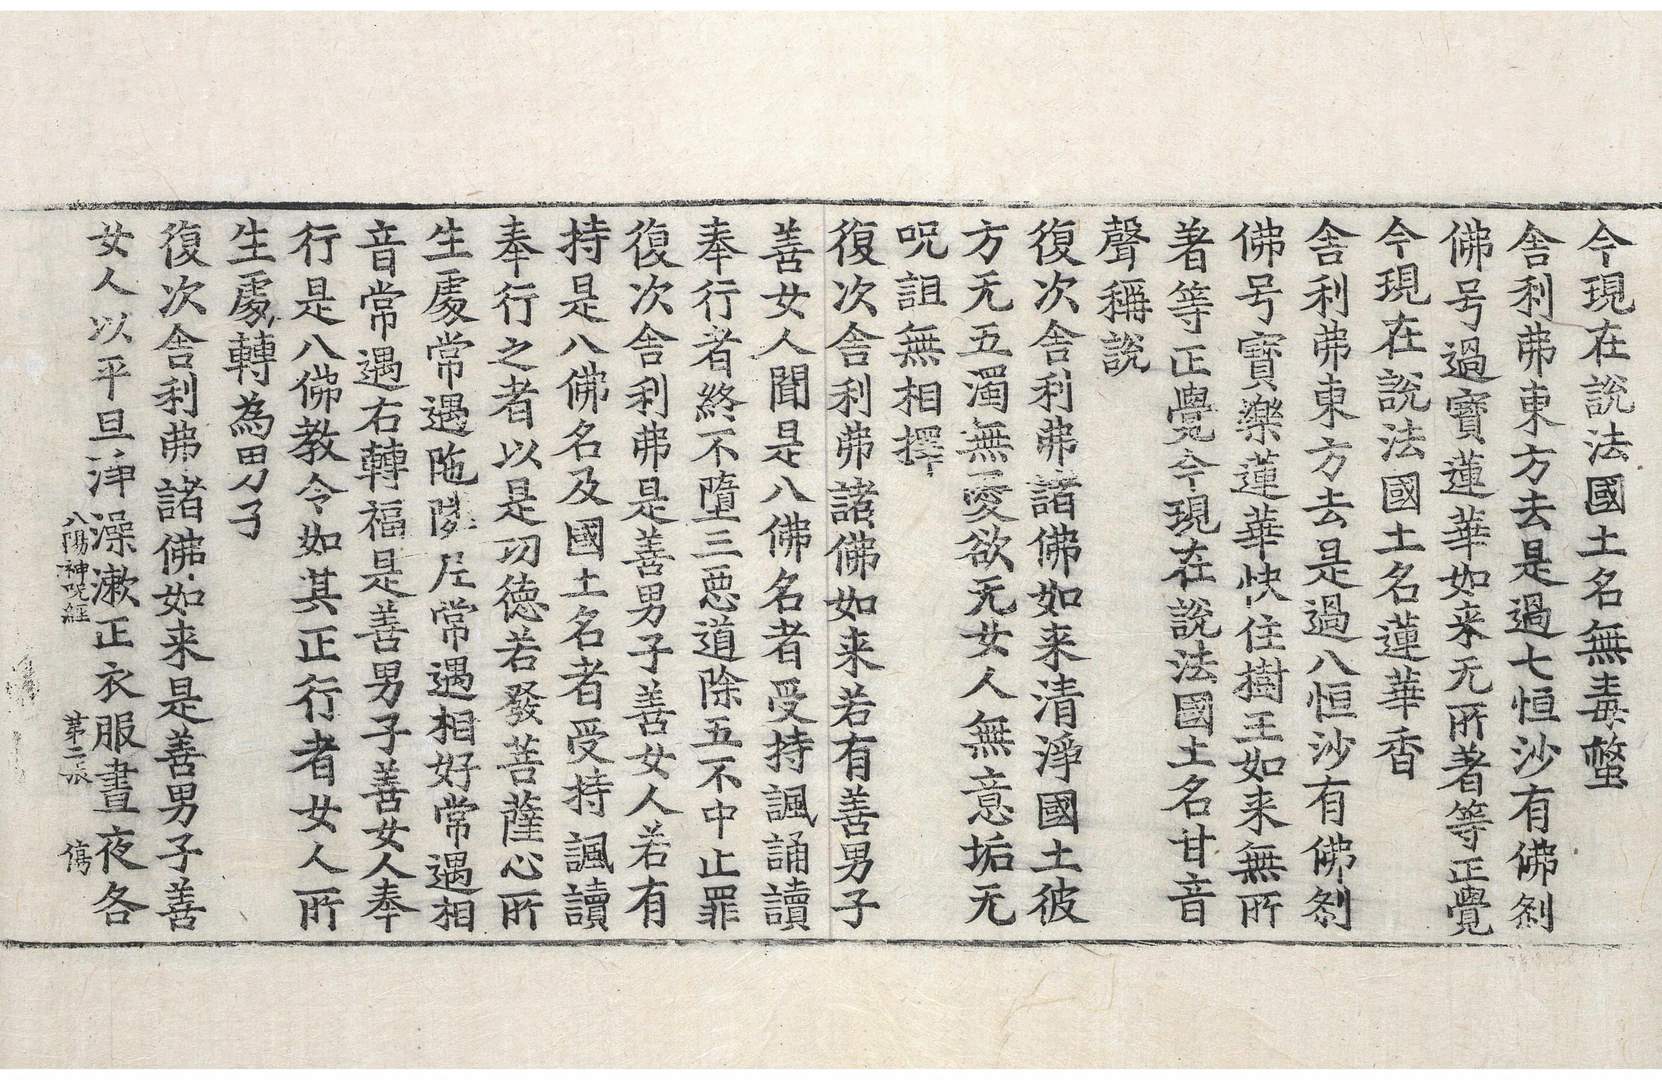 今現在說法國土名無毒螫
舍利弗東方去是過七恒沙有佛剎
佛号過寶蓮華如来无所著等正覺
今現在說法國土名蓮華香
舍利弗東方去是過八恒沙有佛剎
佛号寶樂蓮華快住樹王如来無所
著等正覺今現在說法國土名甘音
聲稱說
復次舍利弗諸佛如来清淨國土彼
方无五濁無愛欲无女人無意垢无
呪詛無相擇
復次舍利弗諸佛如来若有善男子
善女人聞是八佛名者受持諷誦讀
奉行者終不墮三惡道除五不中止罪
復次舍利弗是善男子善女人若有
持是八佛名及國土名者受持諷讀
奉行之者以是功德若發菩薩心所
生處常遇陁隣尼常遇相好常遇相
音常遇右轉福是善男子善女人奉
行是八佛教令如其正行者女人所
生處轉為男子
復次舍利弗諸佛如来是善男子善
女人以平旦淨澡漱正衣服晝夜各
八陽神呪經 第二張